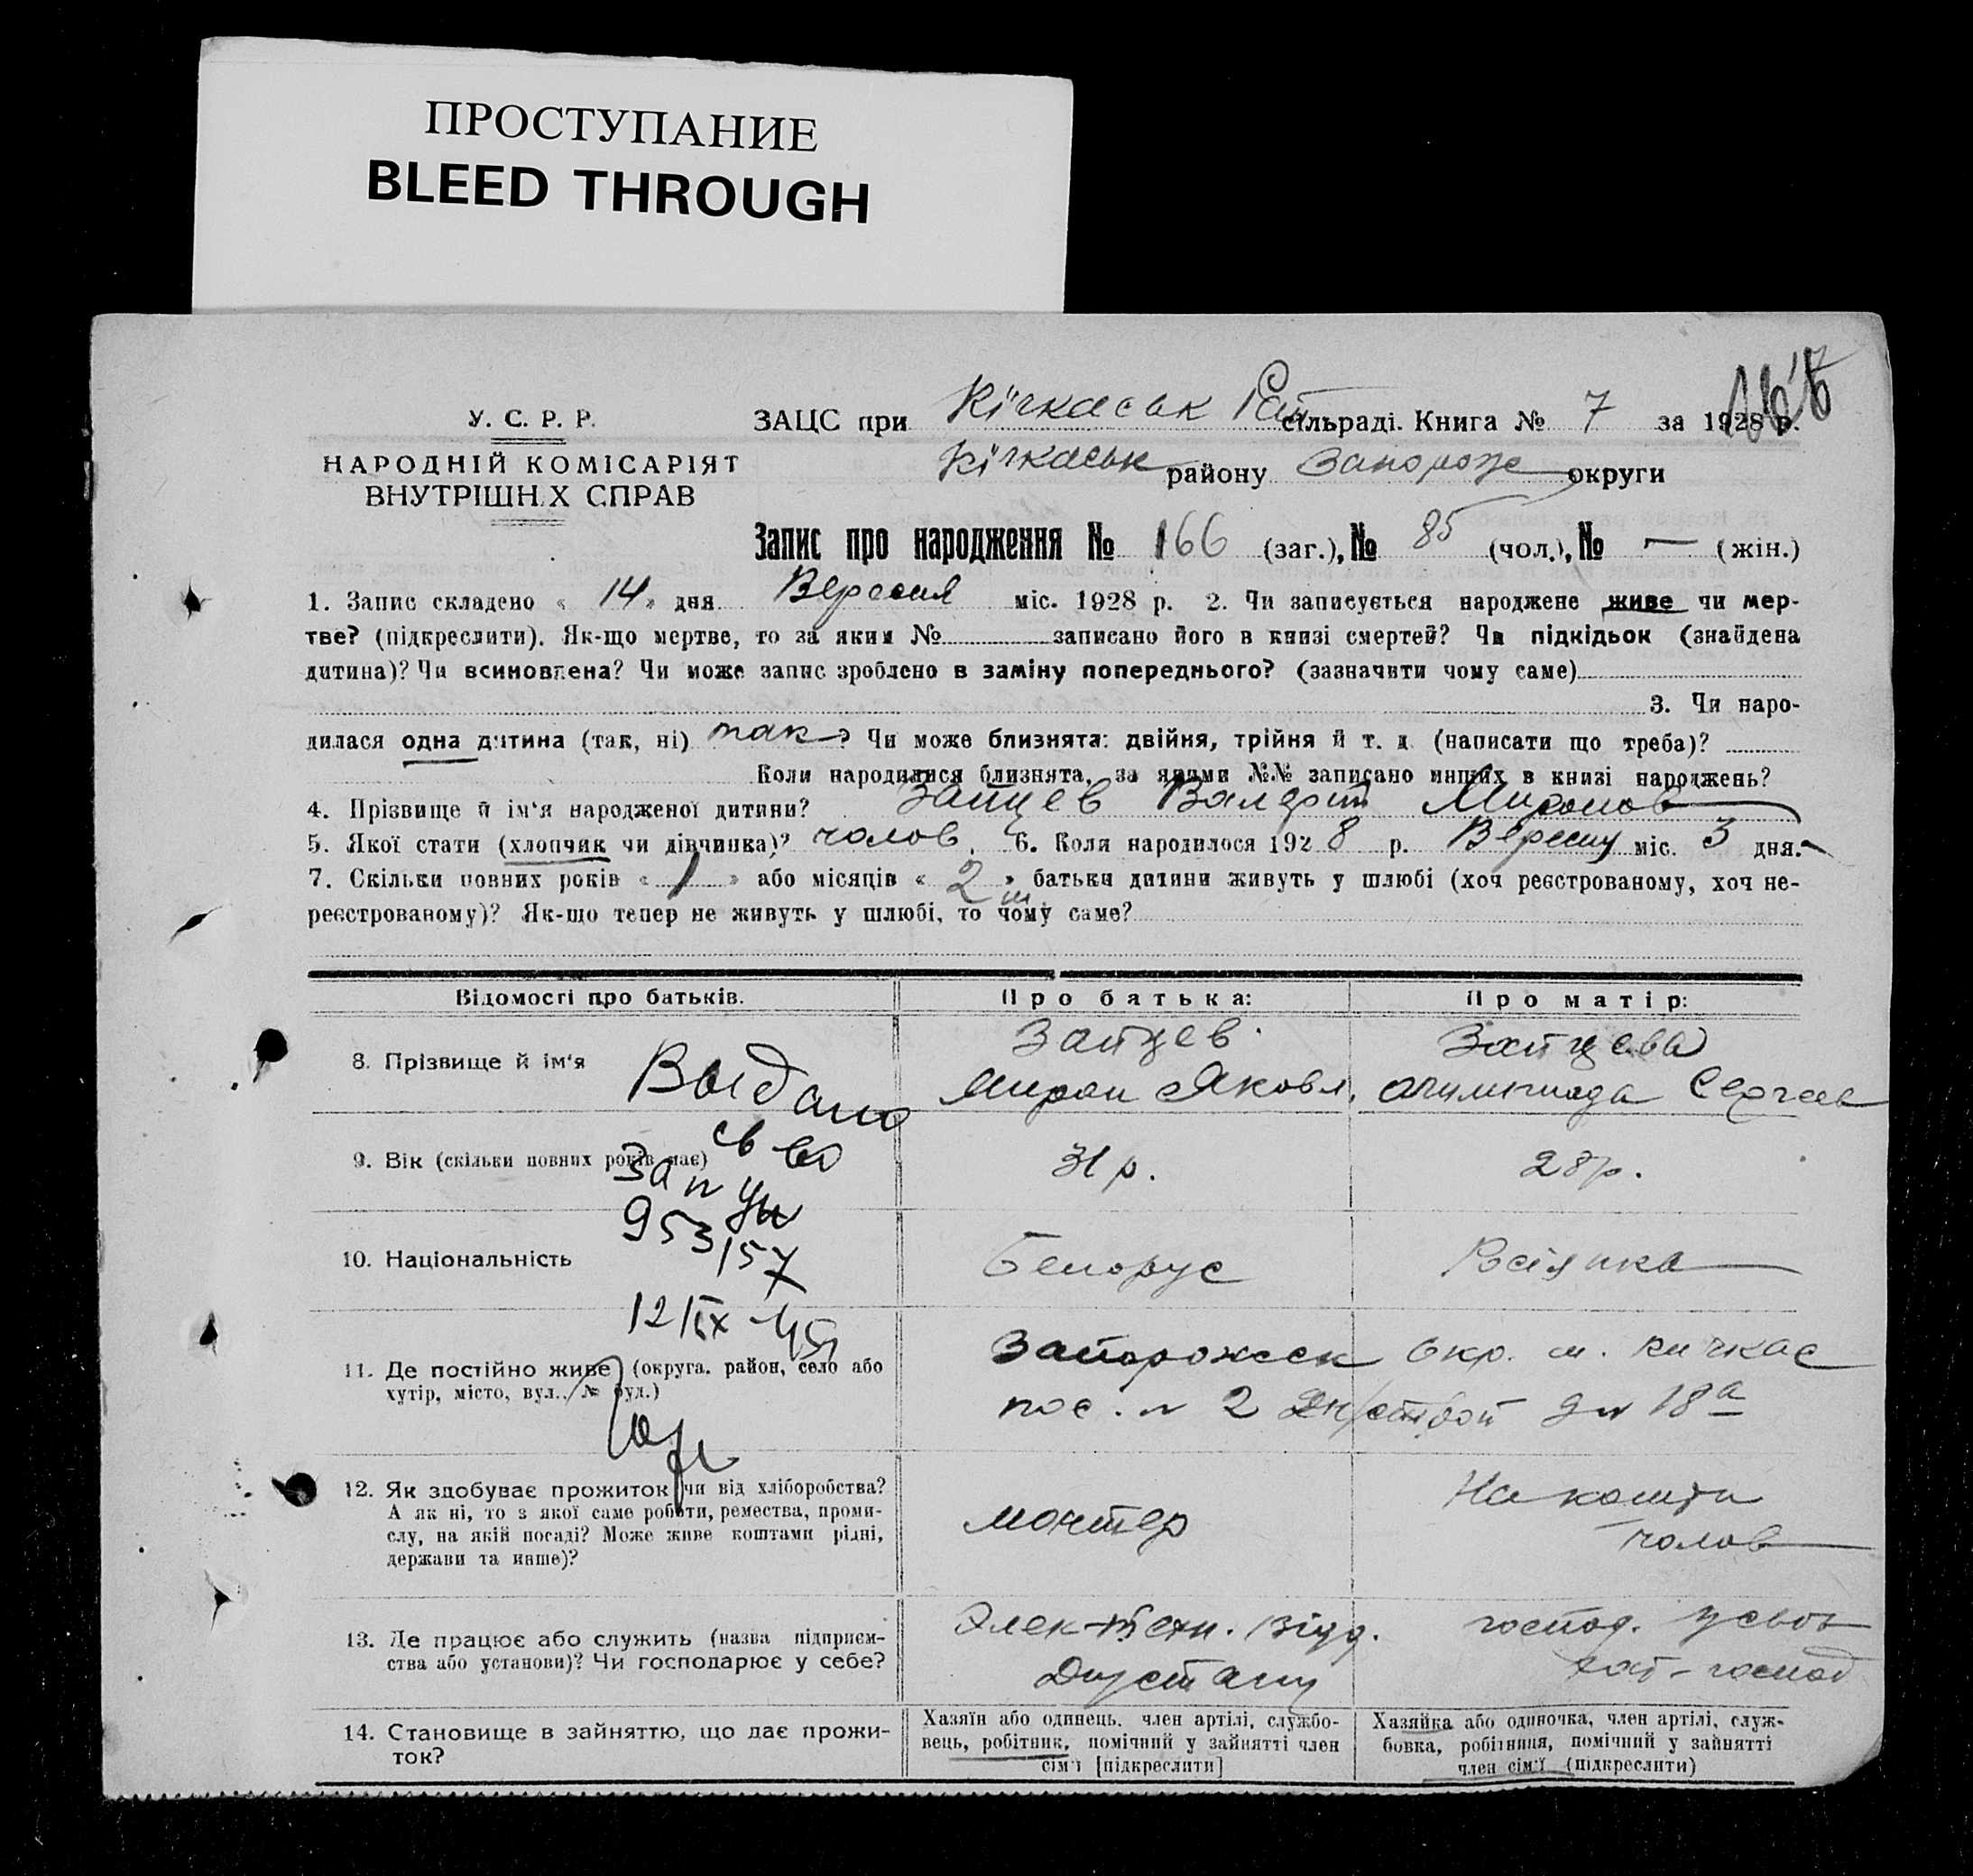 ПРОСТУПАНИЕ
BLEED THROUGH
У. С. Р. Р.
НАРОДНІЙ КОМІСАРІЯТ
ВНУТРІШН.Х СПРАВ
ЗАЦС при Кічкаськ сільраді. Книга № 7 за 1928 р.
Кічкаськ району Запорож округи
Запис про народження № 166 (заг.), № 85 (чол.), № — (жін.)
1. Запис складено « 14 » дня Вересня міс. 1928 р. 2. Чи записується народжене живе чи мер-
тве? (підкреслити). Як-що мертве, то за яким № записано його в книзі смертей? Чи підкідьок (знайдена
дитина)? Чи всиновлена? Чи може запис зроблено в заміну попереднього? (зазначити чому саме)
3. Чи наро-
дилася одна дитина (так, ні) так ? Чи може близнята: двійня, трійня й т. д. (написати що треба)?
Коли народилися близнята, за якими №№ записано инших в книзі народжень?
4. Прізвище й ім'я народженої дитини? Зайцев Валерій Миронов
5. Якої стати (хлопчик чи дівчинка)? чолов. 6. Коли народилося 1928 р. Вересню міс. 3 дня.
7. Скільки повних років « 1 » або місяців « 2 » батьки дитини живуть у шлюбі (хоч реєстрованому, хоч не-
реєстрованому)? Як-що тепер не живуть у шлюбі, то чому саме?
Відомості про батьків.
Про батька:
Про матір:
8. Прізвище й ім'я
Зайцев
Мирон Яковл.
Зайцева
Сергеев
Выдано
св во
9. Вік (скільки повних років має)
31 р.
28 р.
953157
10. Національність
Белорус
Росіянка
12/IX
11. Де постійно живе (округа, район, село або
хутір, місто, вул., № буд.)
Запорожск окр. м. Кичкас
пос. № 2 Дн/строй д № 18а
12. Як здобуває прожиток чи від хліборобства?
А як ні, то з якої саме роботи, ремества, проми-
слу, на якій посаді? Може живе коштами рідні,
держави та инше)?
монтер
На кошти
чолов
13. Де працює або служить (назва підприєм-
ства або установи)? Чи господарює у себе?
Элек-техн. відд.
господ.
14. Становище в зайняттю, що дає прожи-
ток?
Хазяїн або одинець, член артілі, службо-
вець, робітник, помічний у зайнятті член
сім'ї [підкреслити]
Хазяйка або одиночка, член артілі, служ-
бовка, робітниця, помічний у зайнятті
член сім'ї (підкреслити)